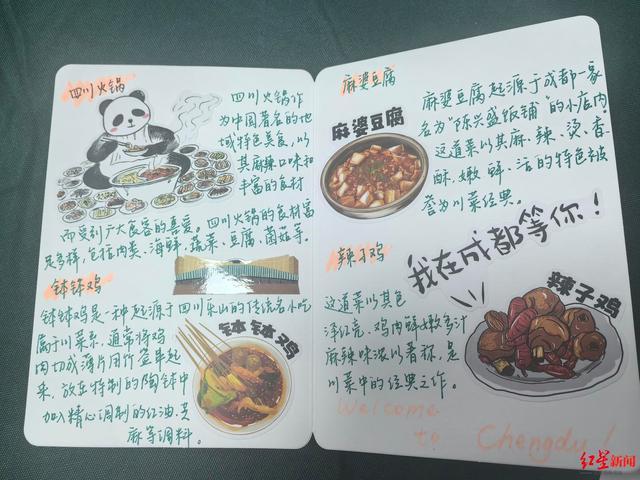 四川火锅
四川火锅作
为中国著名的地
域特色美食，以
其麻辣口味和
丰富的食材
而受到广大食客的喜爱。四川火锅的食材富
足多样，包括肉类、海鲜、蔬菜、豆腐、菌菇等。
钵钵鸡
钵钵鸡是一种起源于四川乐山的传统名小吃
属于川菜系，通常将鸡
肉切成薄片用竹签串起
来，放在特制的陶钵中
加入精心调制的红油、芝
麻等调料。
钵钵鸡
麻婆豆腐
麻婆豆腐起源于成都一家
名为“陈兴盛饭铺”的小店内
这道菜以其麻、辣、烫、香
酥、嫩、鲜、活的特色被
誉为川菜经典。
麻婆豆腐
我在成都等你！
辣子鸡
这道菜以其色
泽红亮、鸡肉鲜嫩多汁
麻辣味浓以著称，是
川菜中的经典之作。
辣子鸡
Welcome
to Chengdu!
红星新闻